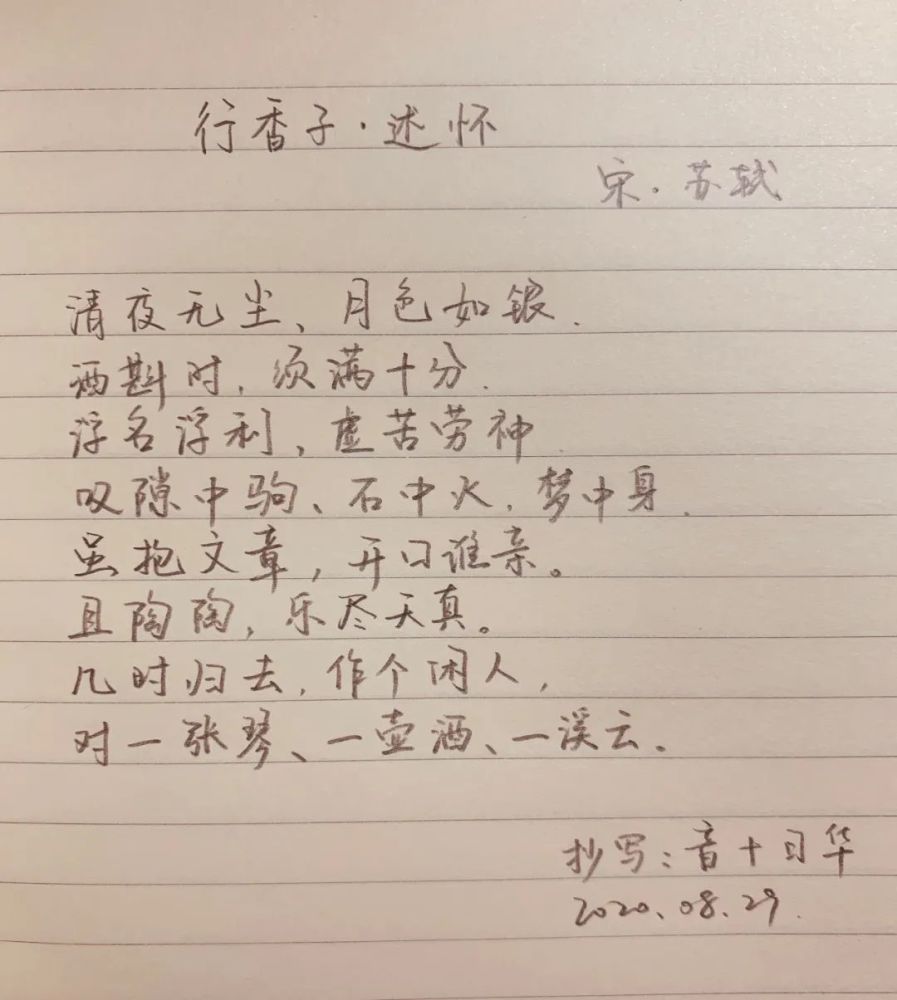 行香子·述怀
宋·苏轼
清夜无尘、月色如银.
酒斟时,须满十分.
浮名浮利、虚苦劳神.
叹隙中驹、石中火,梦中身.
虽抱文章,开口谁亲。
且陶陶,乐尽天真。
几时归去,作个闲人,
对一张琴、一壶酒、一溪云.
抄写:音十日华
2020.08.29.